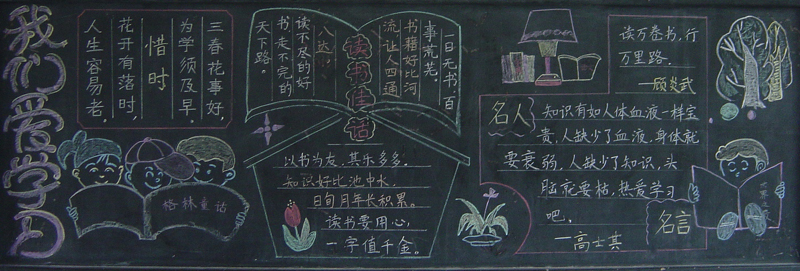 我们爱学习
惜时
三春花事好,
为学须及早,
花开有落时,
人生容易老。
格林童话
读书佳话
一日无书,百
事荒芜。
书籍好比河
流,让人四通
八达。
读不及的好
书,走不完的
天下路。
以书为友,其乐多多。
知识好比池中水,
日旬月年长积累。
读书要用心,
一字值千金。
读万卷书,行
万里路。
——顾炎武
名人
知识有如人体血液一样宝
贵,人缺少了血液,身体就
要衰弱,人缺少了知识,头
脑就要枯,热爱学习
吧。
——高士其
名言